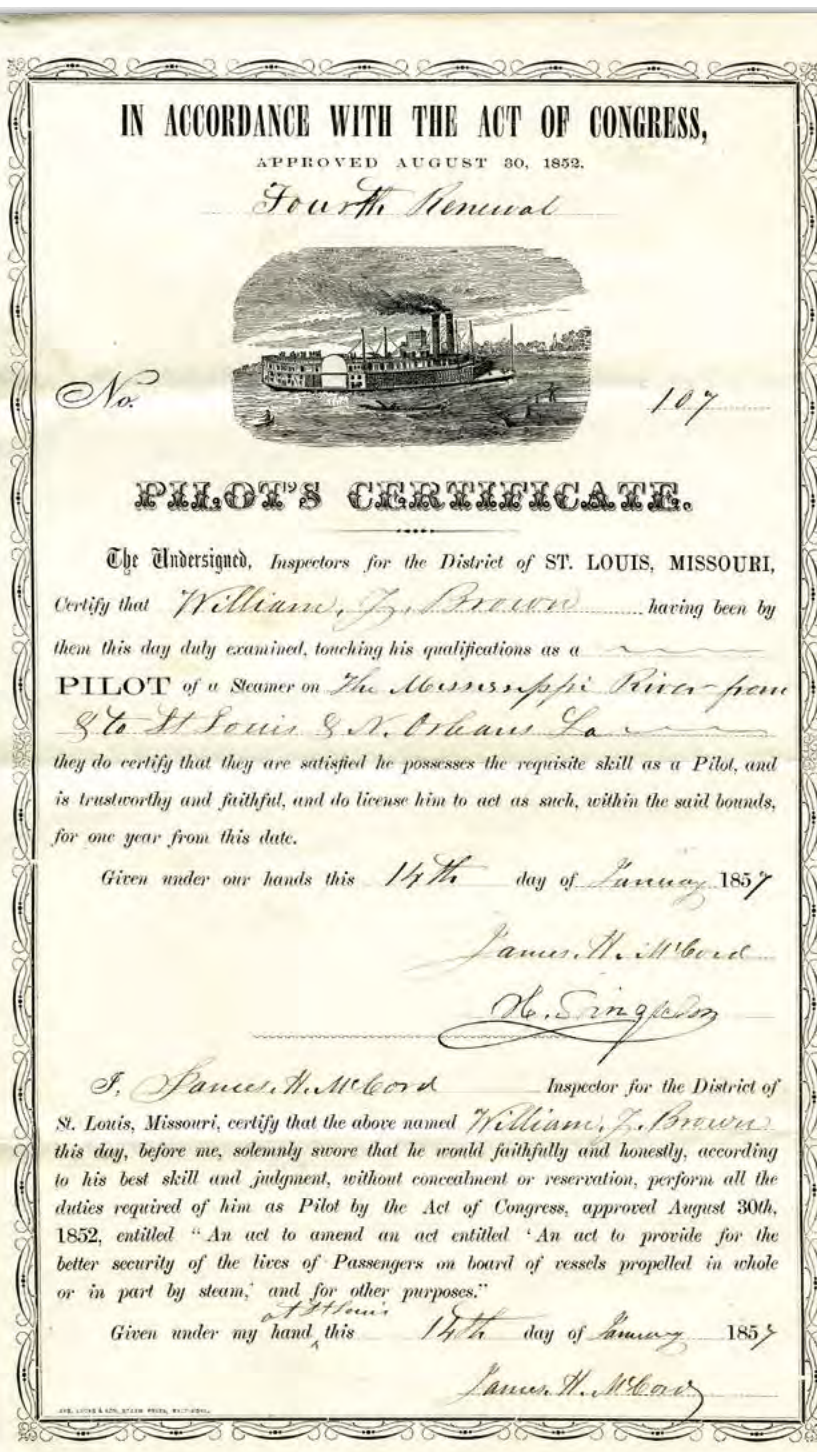 IN ACCORDANCE WITH THE ACT OF CONGRESS,
APPROVED AUGUST 30, 1852.
Fourth Renewal
No. 107
PILOT'S CERTIFICATE.
The Undersigned, Inspectors for the District of ST. LOUIS, MISSOURI,
Certify that William, J, Brown having been by
them this day duly examined, touching his qualifications as a
PILOT of a Steamer on The Mississippi River from
& to St Louis & N. Orleans La
they do certify that they are satisfied he possesses the requisite skill as a Pilot, and
is trustworthy and faithful, and do license him to act as such, within the said bounds,
for one year from this date.
Given under our hands this 14th day of January 1857
James. H. McCord
H. Singleton
I, James. H. McCord Inspector for the District of
St. Louis, Missouri, certify that the above named William, J. Brown
this day, before me, solemnly swore that he would faithfully and honestly, according
to his best skill and judgment, without concealment or reservation, perform all the
duties required of him as Pilot by the Act of Congress, approved August 30th,
1852, entitled "An act to amend an act entitled 'An act to provide for the
better security of the lives of Passengers on board of vessels propelled in whole
or in part by steam,' and for other purposes."
at St Louis
Given under my hand ‸ this 14th day of January 1857
James. H. McCord